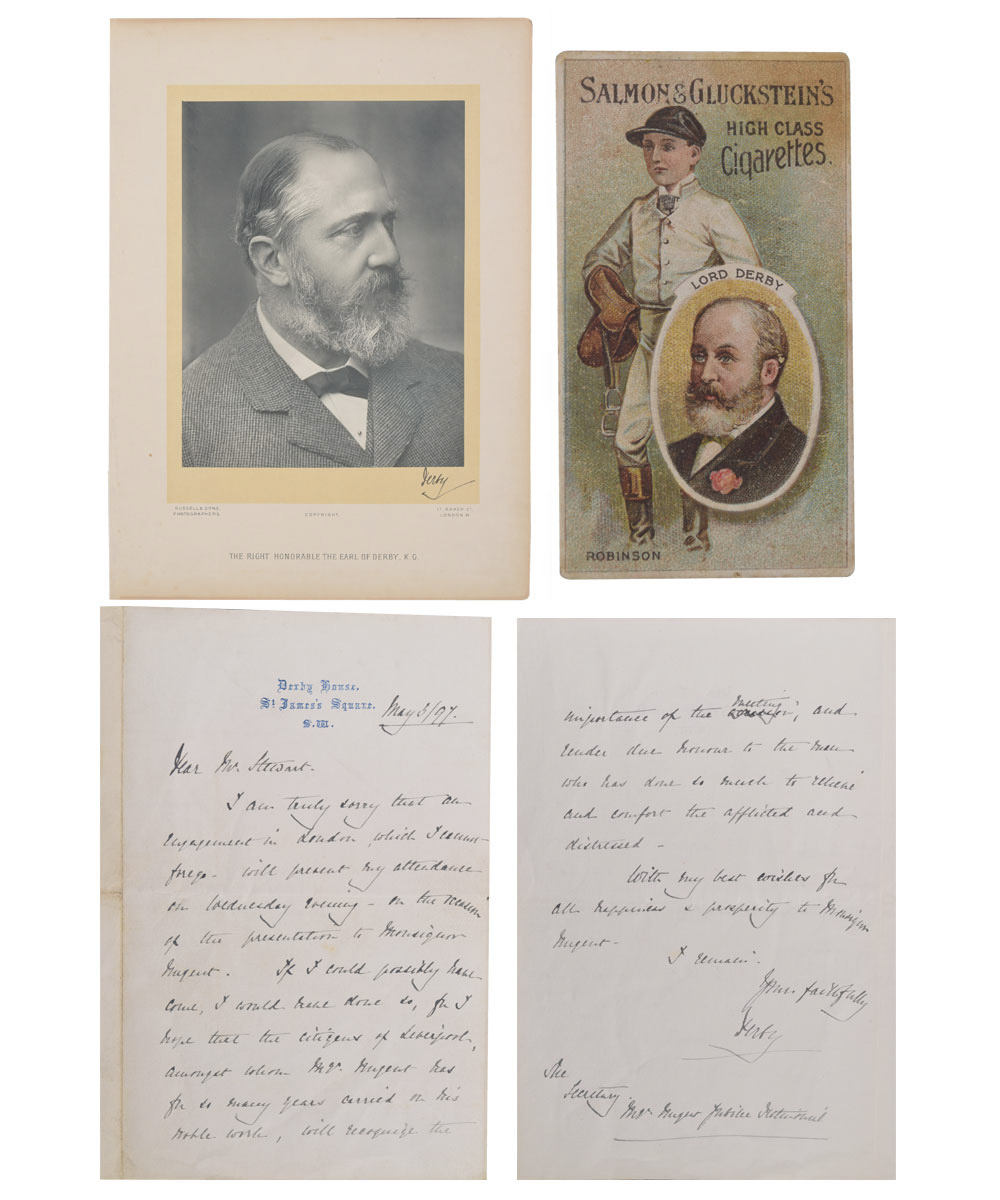 Derby
RUSSELL & SONS,
PHOTOGRAPHERS.
COPYRIGHT.
17, BAKER ST,
LONDON W.
THE RIGHT HONORABLE THE EARL OF DERBY, K.G.
SALMON & GLUCKSTEIN'S
HIGH CLASS
Cigarettes.
LORD DERBY
ROBINSON
Derby House,
St James's Square.
S.W.
May 3/97.
Dear Mr. Stewart.
I am truly sorry that an
engagement in London which I cannot
forego - will prevent my attendance
on Wednesday evening - on the occasion
of the presentation to Monsignor
Nugent. If I could possibly have
come, I would have done so, for I
hope that the citizens of Liverpool,
amongst whom Mgr. Nugent has
for so many years carried on his
noble work, will recognize the
importance of the meeting, and
render due honour to the man
who has done so much to relieve
and comfort the afflicted and
distressed -
With my best wishes for
all happiness & prosperity to Monsignor
Nugent -
I remain.
Yours faithfully
Derby
The
Secretary
Jubilee Testimonial